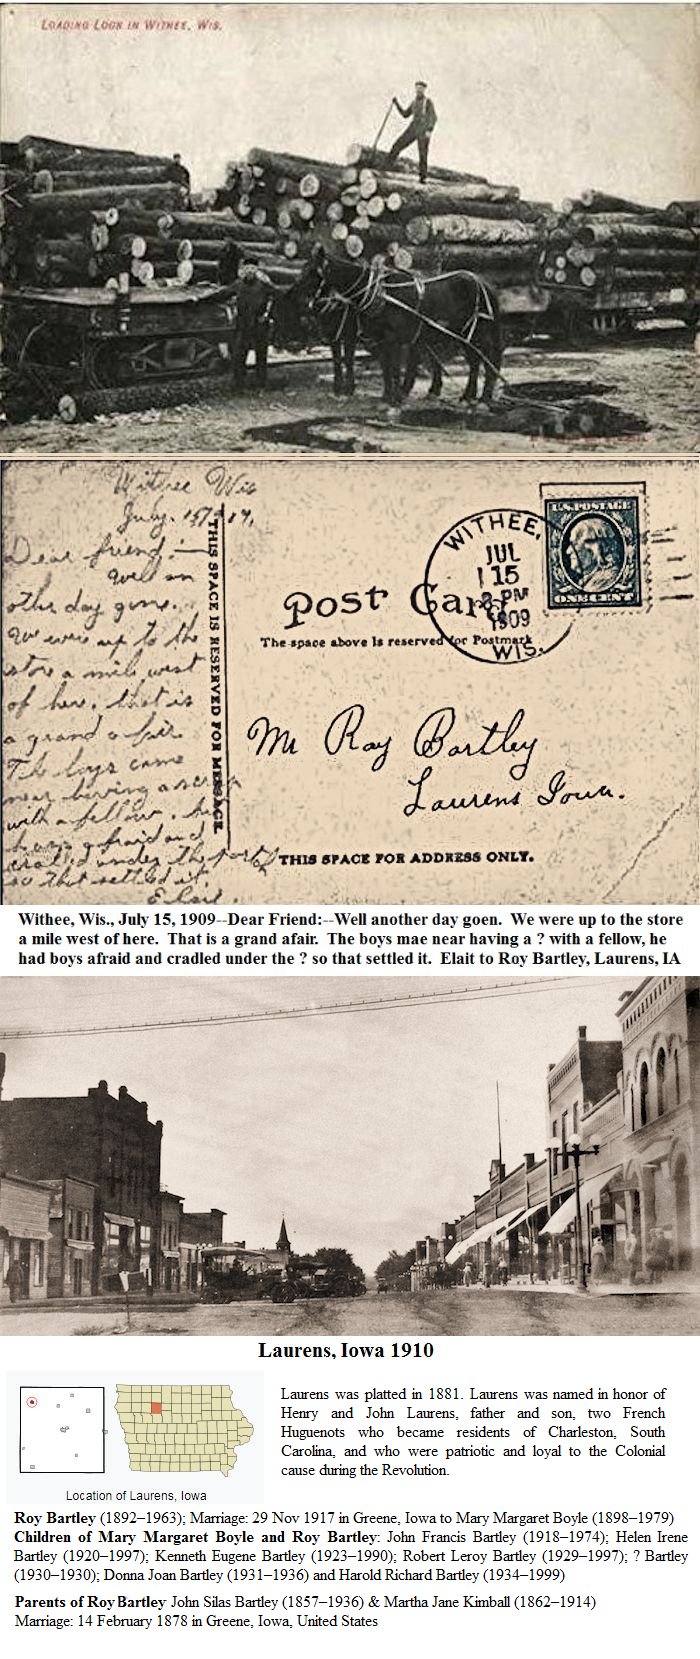 LOADING LOGS IN WITHEE, WIS.
Withee Wis
July. 15, 1909.
Dear friend:—
Well an
other day gone.
We were up to the
store a mile west
of here. that is
a grand afair.
The boys came
near having a
with a fellow. he
was afraid and
crawled under the
so that settled it.
THIS SPACE IS RESERVED FOR MESSAGE.
Post Card
The space above is reserved for Postmark
WITHEE,
JUL
15
PM
1909
WIS.
U.S. POSTAGE
ONE CENT
Mr Roy Bartley
Laurens Iowa.
THIS SPACE FOR ADDRESS ONLY.
Withee, Wis., July 15, 1909--Dear Friend:--Well another day goen. We were up to the store
a mile west of here. That is a grand afair. The boys mae near having a ? with a fellow, he
had boys afraid and cradled under the ? so that settled it. Elait to Roy Bartley, Laurens, IA
Laurens, Iowa 1910
Laurens was platted in 1881. Laurens was named in honor of
Henry and John Laurens, father and son, two French
Huguenots who became residents of Charleston, South
Carolina, and who were patriotic and loyal to the Colonial
cause during the Revolution.
Location of Laurens, Iowa
Roy Bartley (1892–1963); Marriage: 29 Nov 1917 in Greene, Iowa to Mary Margaret Boyle (1898–1979)
Children of Mary Margaret Boyle and Roy Bartley: John Francis Bartley (1918–1974); Helen Irene
Bartley (1920–1997); Kenneth Eugene Bartley (1923–1990); Robert Leroy Bartley (1929–1997); ? Bartley
(1930–1930); Donna Joan Bartley (1931–1936) and Harold Richard Bartley (1934–1999)
Parents of Roy Bartley John Silas Bartley (1857–1936) & Martha Jane Kimball (1862–1914)
Marriage: 14 February 1878 in Greene, Iowa, United States